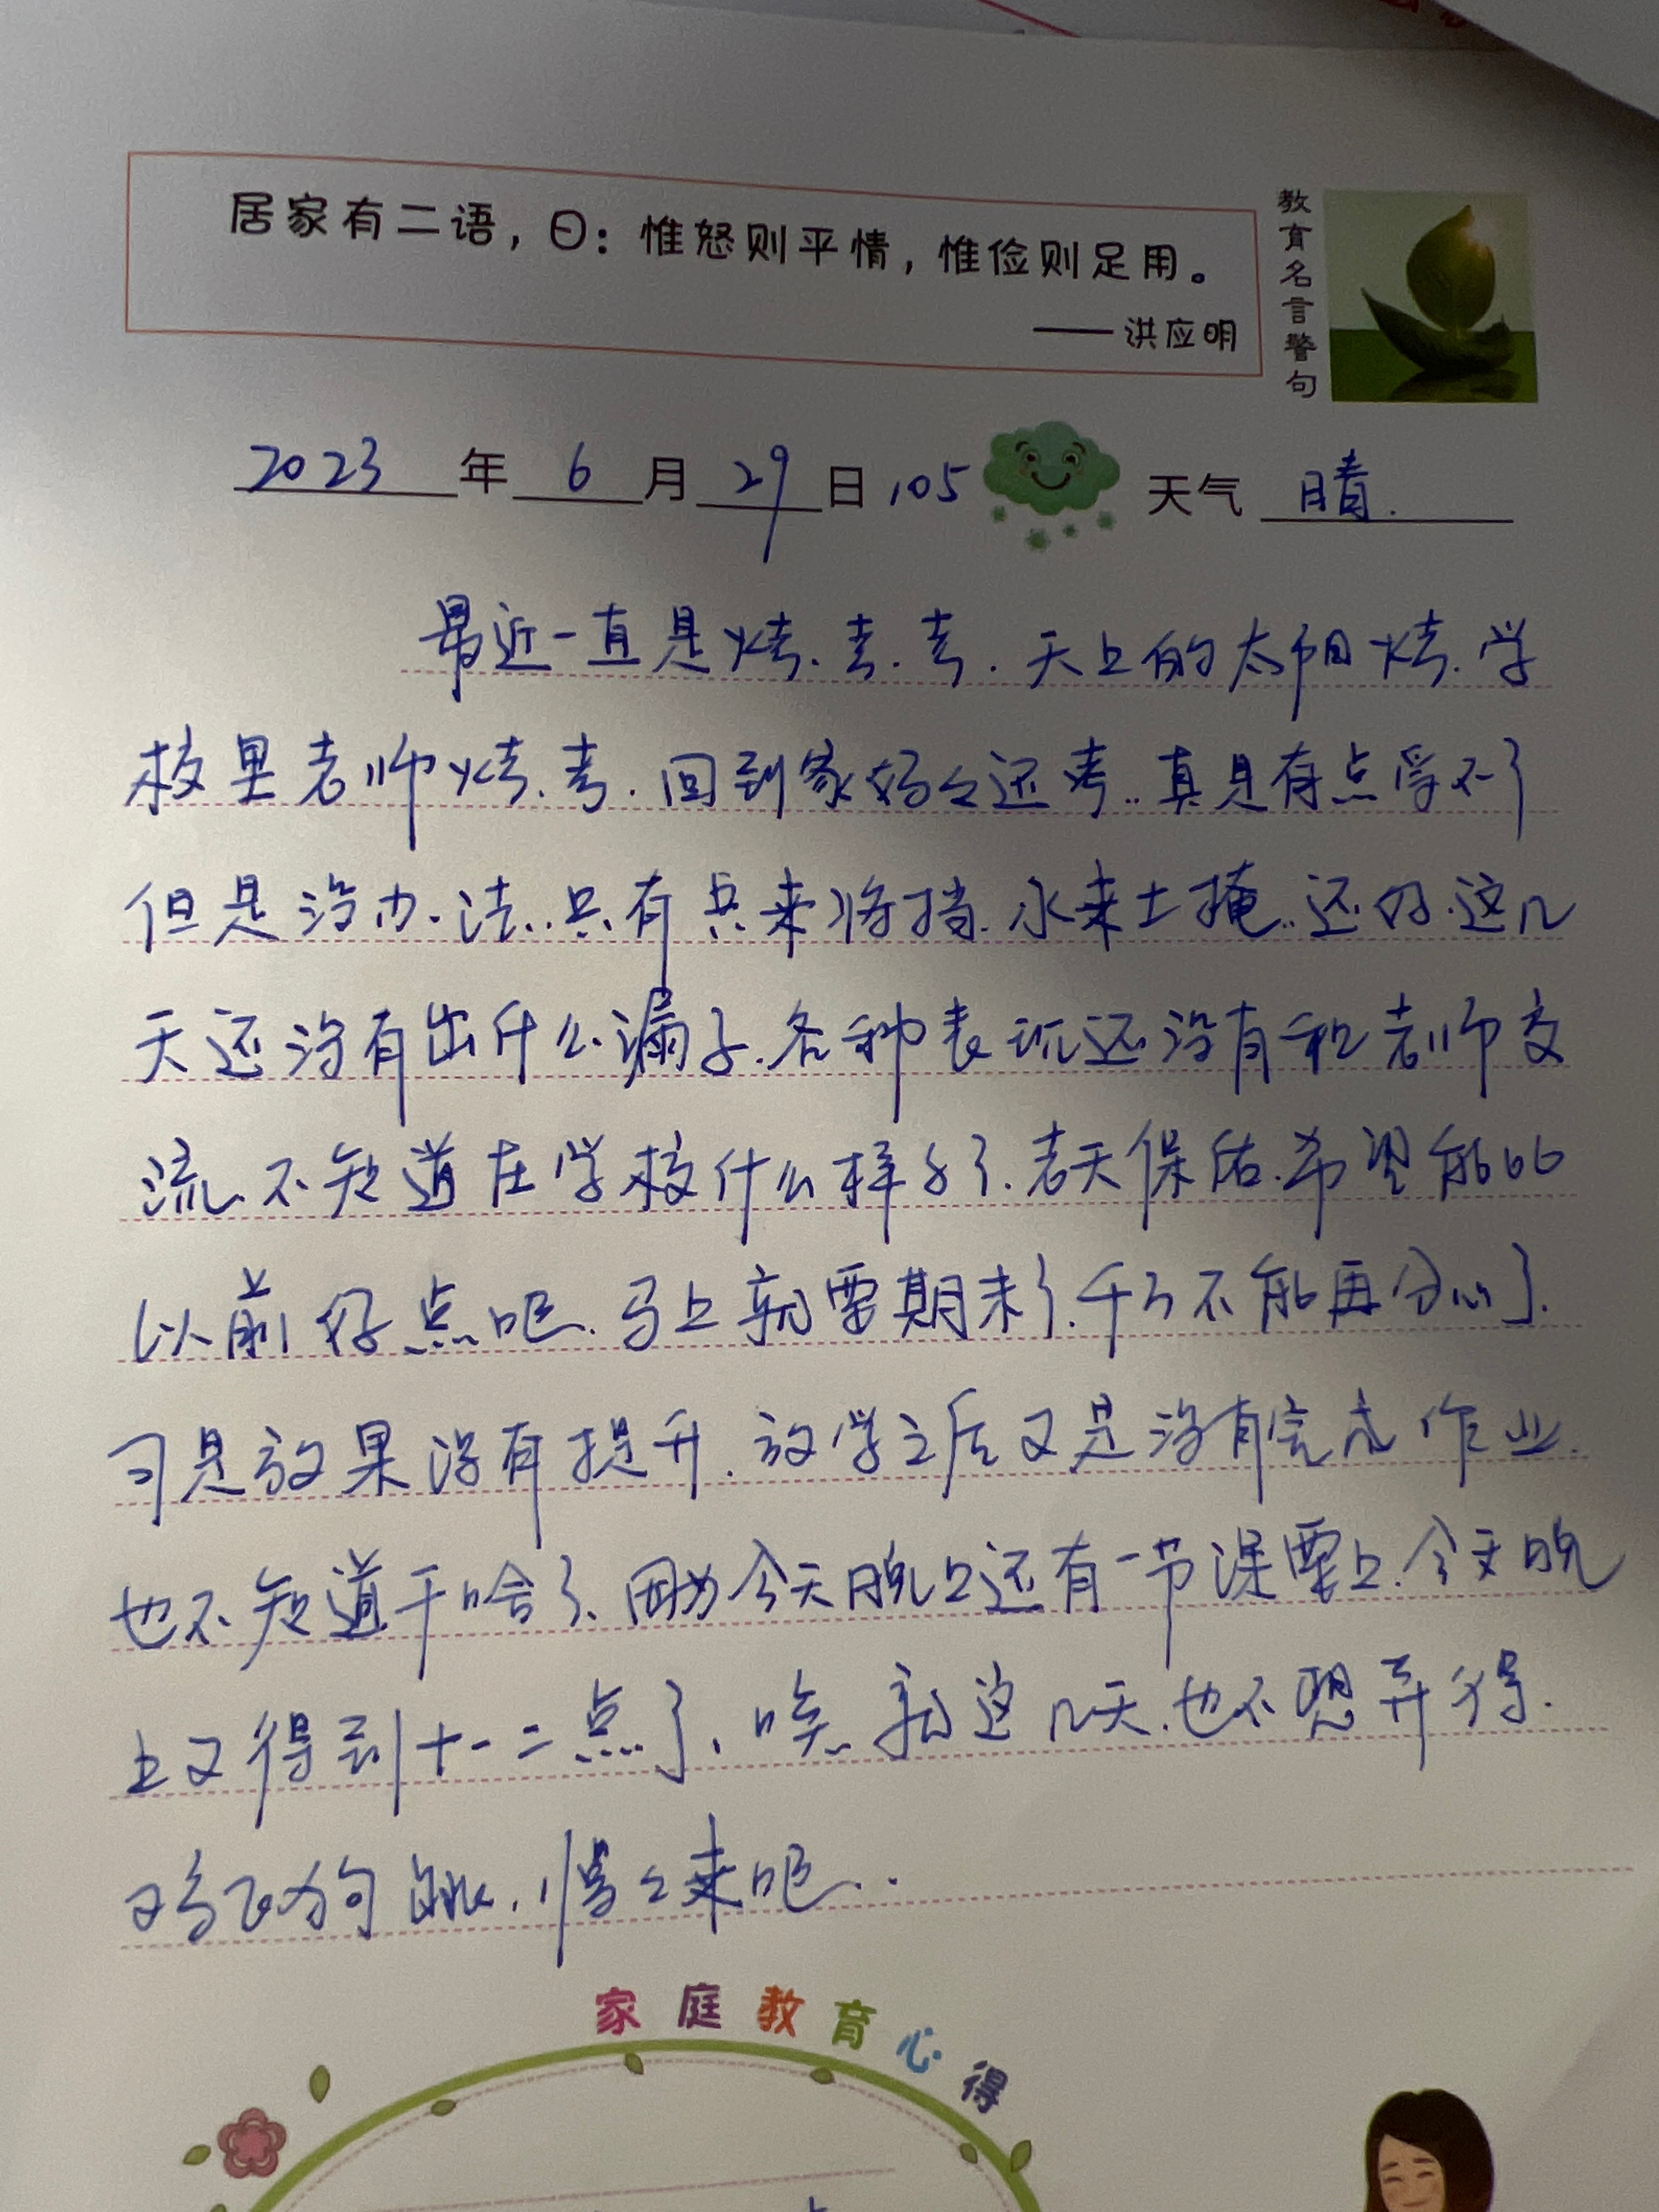 居家有二语，曰：惟怒则平情，惟俭则足用。
——洪应明
教育名言警句
2023年6月29日 105 天气 晴.
最近一直是烤.考.考.天上的太阳烤.学
校里老师烤.考.回到家妈々还考..真是有点受不了
但是没办法..只有兵来将挡.水来土掩..还好.这几
天还没有出什么漏子.各种表现还没有和老师交
流.不知道在学校什么样子了.老天保佑.希望能比
以前好点吧.马上就要期末了.千万不能再分心了.
可是效果没有提升.放学之后又是没有完成作业.
也不知道干啥了.因为今天晚上还有一节课要上.今天晚
上又得到十一二点了.唉.就这几天.也不想弄得.
又鸡飞狗跳.慢々来吧..
家庭教育心得